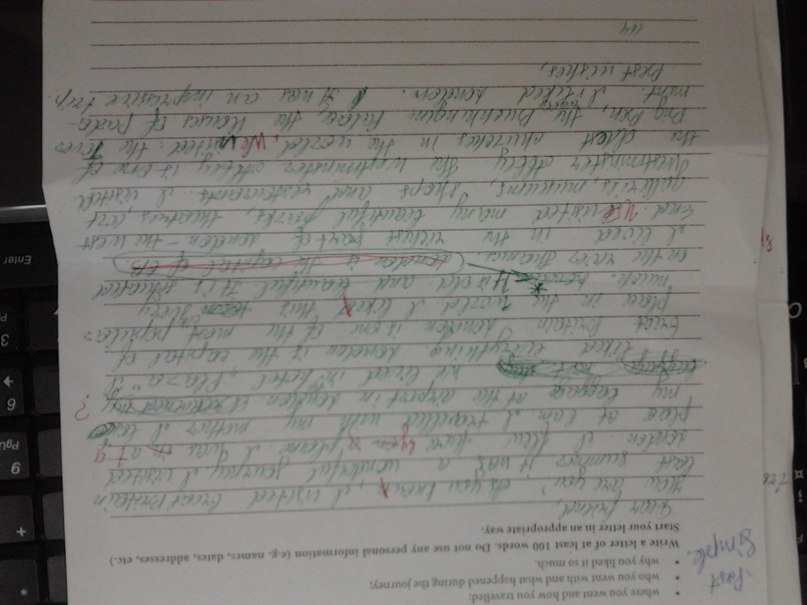 where you went and how you travelled;
who you went with and what happened during the journey;
why you liked it so much.
Write a letter of at least 100 words. Do not use any personal information (e.g. names, dates, addresses, etc.)
Start your letter in an appropriate way.
Past
Simple
Dear friend,
How are you? As you know, I visited Great Britain
last summer. It was a wonderful journey. I visited
London. I flew here by plane. I was at
place at 6 am. I travelled with my mother. I
my baggage at the airport in London.
We lived in hotel "Plaza".
I liked everything. London is the capital of
Great Britain. London is one of the most popular
place in the world. I liked this very
much. It's old and beautiful. It's situated
on the river Thames. London is the capital of GB.
I lived in the richest part of London - the West
End. We visited many beautiful parks, theatres, art
galleries, museums, shops and restaurants. I visited
Westminster Abbey. The Westminster Abbey is one of
the oldest churches in the world. We visited the Tower
Big Ben, the Buckingham Palace, the Houses of Parlia-
ment. I liked London. It was an impressive trip.
Best wishes,
Enter
3
6
9
PgUp